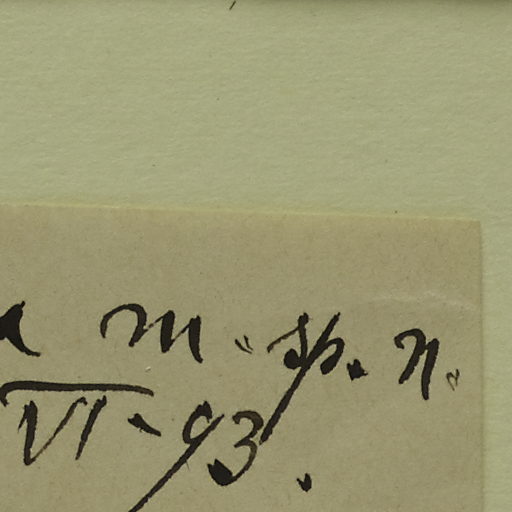 a m. sp. n.
VI. 93.